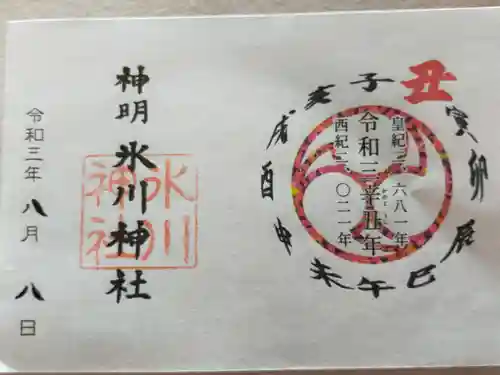 丑
子
寅
卯
辰
巳
午
未
申
酉
戌
亥
皇紀二六八一年
令和三年辛丑年
西紀二〇二一年
神明氷川神社
氷川
神社
令和三年八月八日